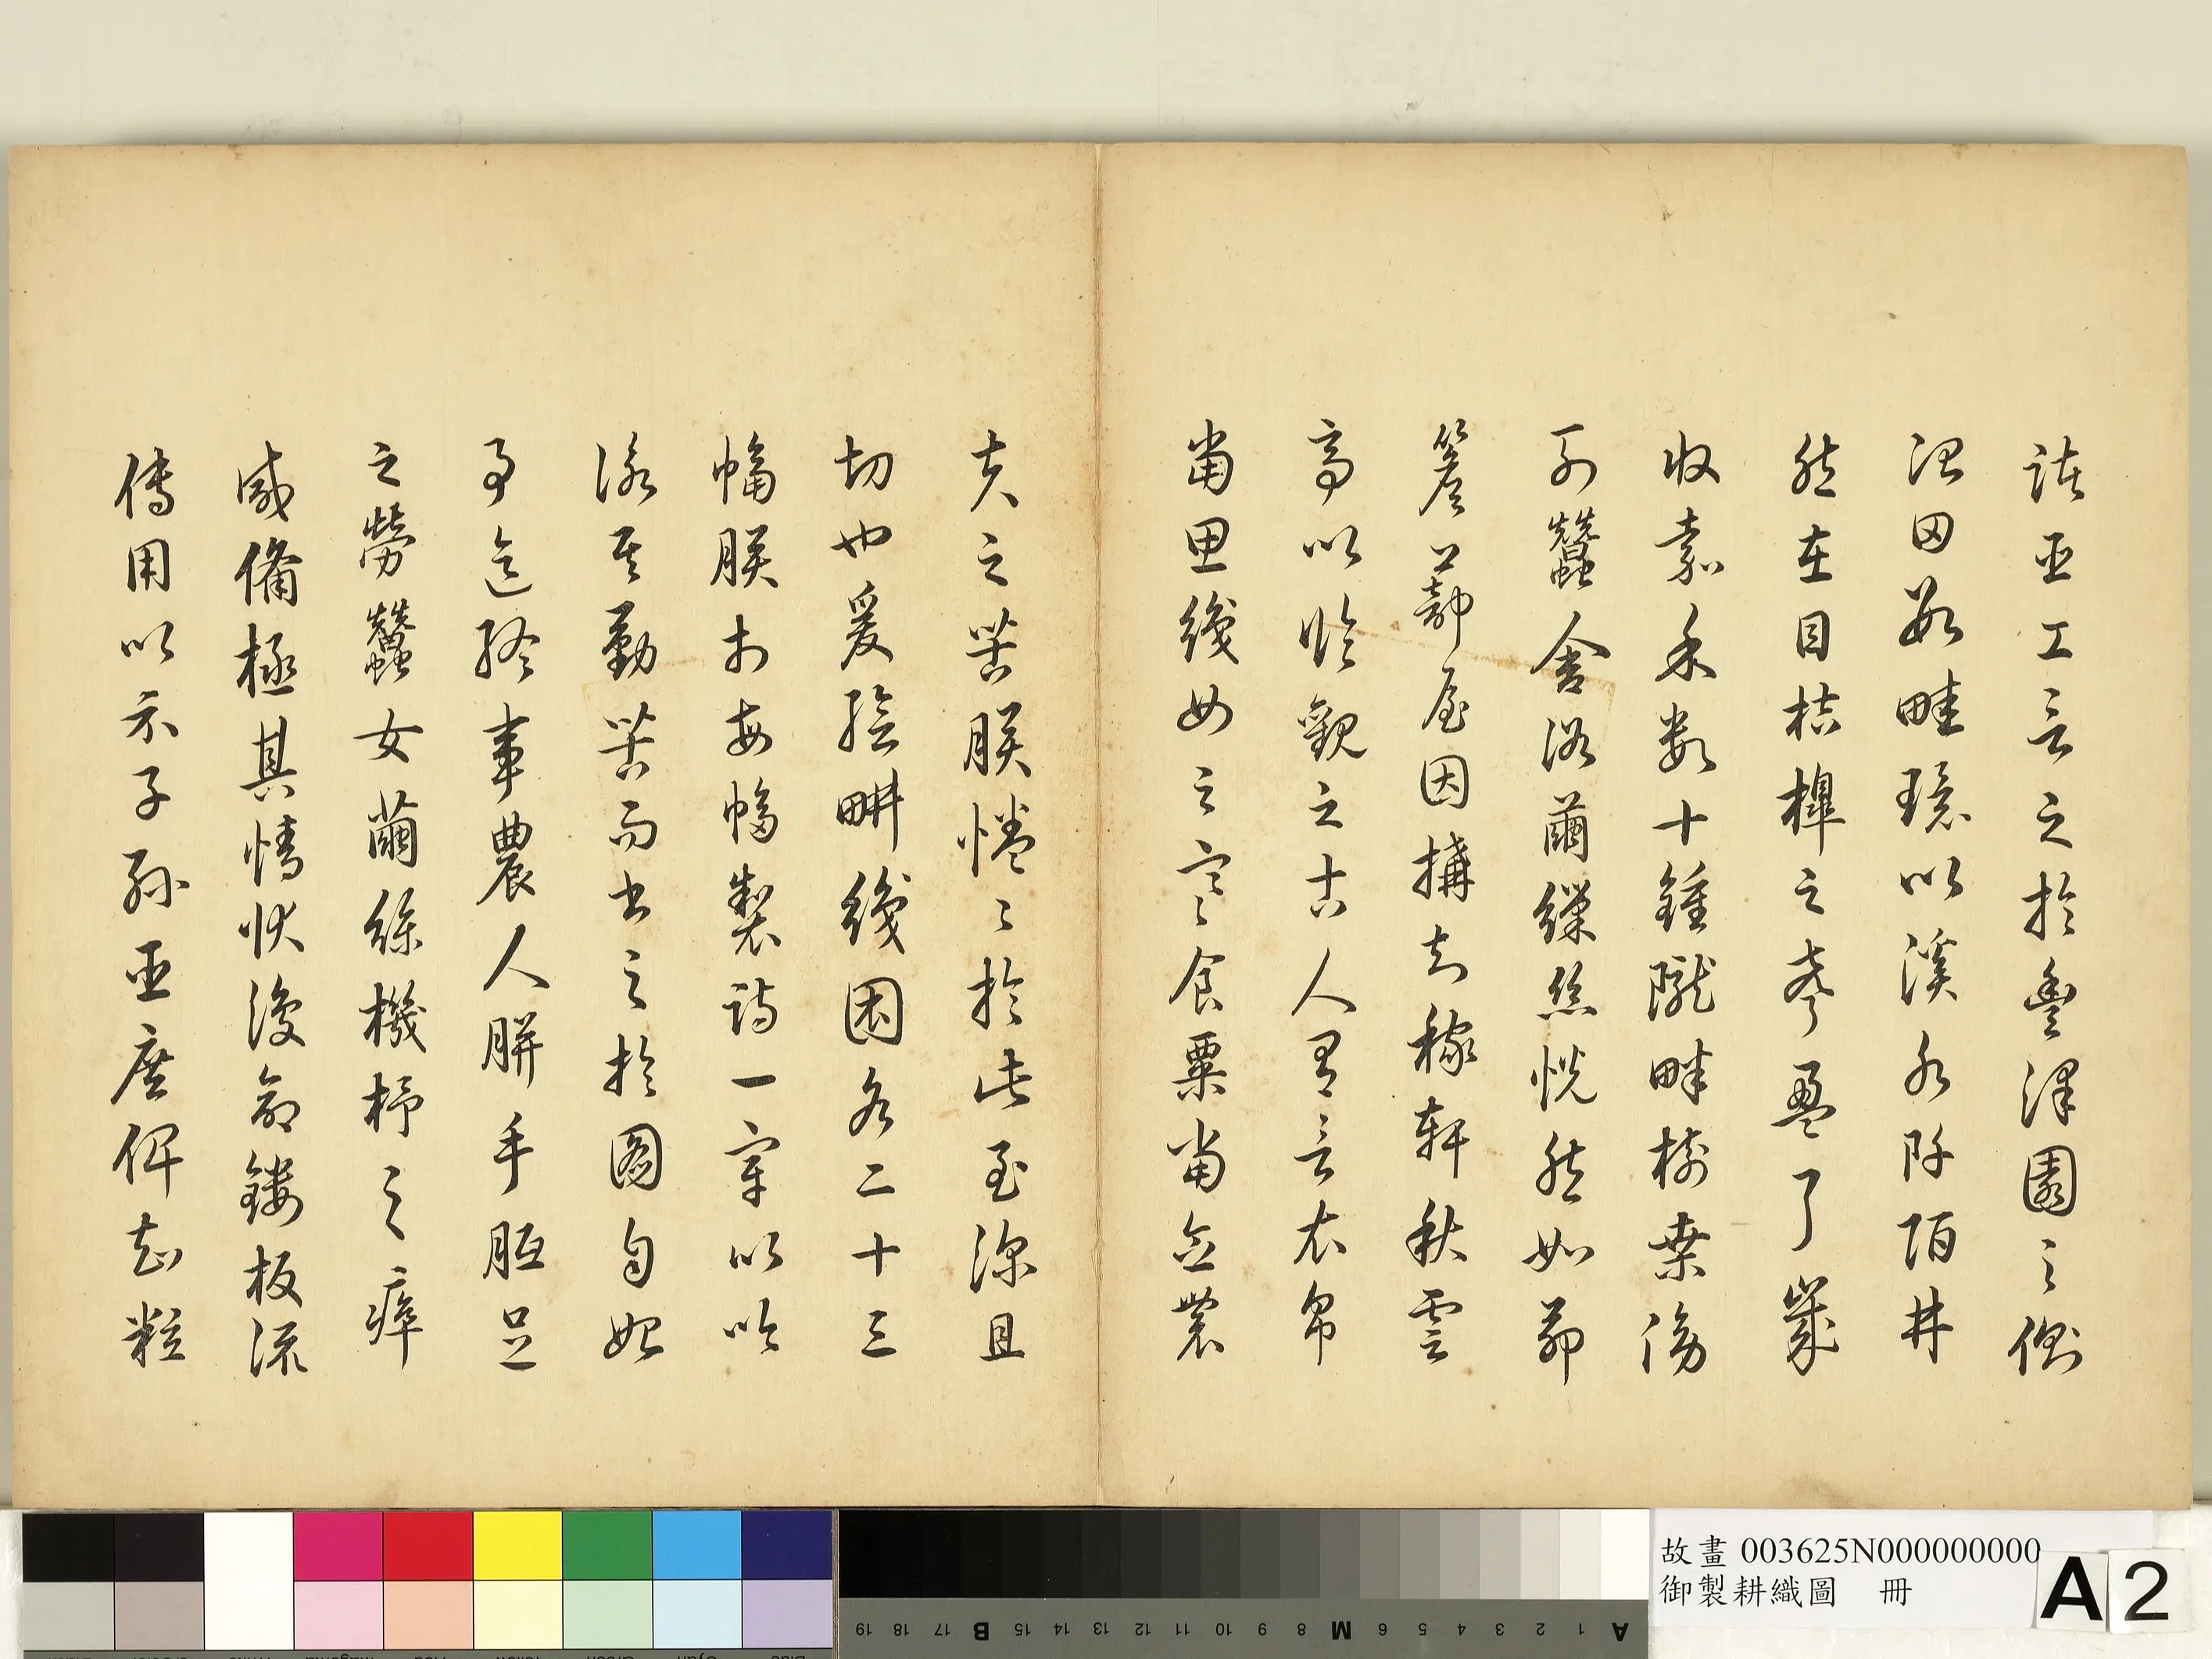 諸臣工言之於豐澤園之側
治田數畦環以溪水阡陌井
然在目桔槔之聲盈耳歲
收嘉禾數十鍾隴畔樹桑傍
列蠶舍浴繭繅絲恍然如茆
簷蔀屋因構知稼軒秋雲
亭以臨觀之古人有言衣帛
當思織女之寒食粟當念農
夫之苦朕惓〻於此至深且
切也爰繪畊織圖各二十三
幅朕於每幅製詩一章以吟
詠其勤苦而書之於圖自始
事迄終事農人胼手胝足
之勞蠶女繭絲機杼之瘁
咸備極其情狀復命鏤板流
傳用以示子孫臣庶俾知粒
故畫 003625N000000000
御製耕織圖 冊
A 2
A 1 2 3 4 5 6 M 8 9 10 11 12 13 14 15 B 17 18 19